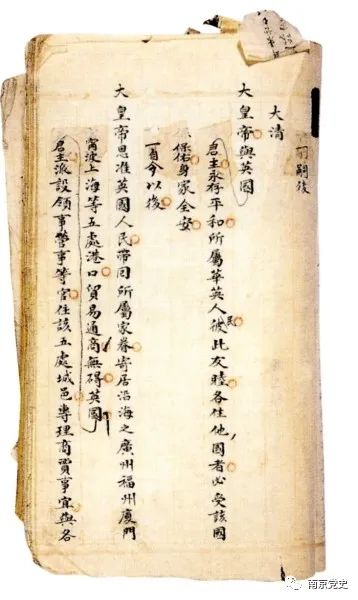 一嗣後
大清
大皇帝與英國
君主永存平和所屬華英人民彼此友睦各住他國者必受該國
保佑身家全安
一自今以後
大皇帝恩准英國人民帶同所屬家眷寄居沿海之廣州福州廈門
甯波上海等五處港口貿易通商無碍英國
君主派設領事管事等官住該五處城邑專理商賈事宜與各
南京党史